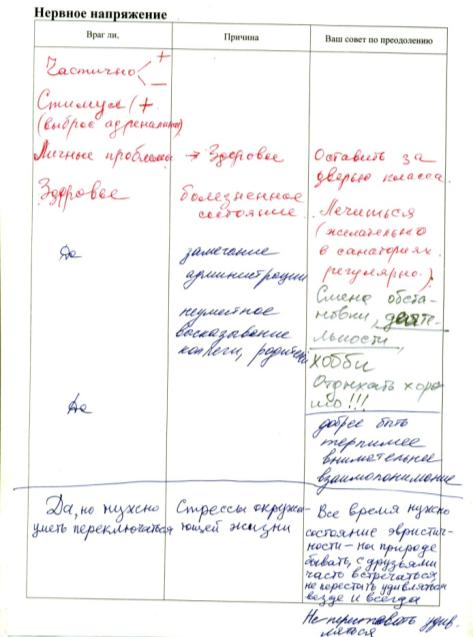 Нервное напряжение
Враг ли,
Причина
Ваш совет по преодолению
Частично < + –
Стимул (+
(выброс адреналина)
Личные проблемы
→ Здоровье
Оставить за
дверью класса.
Здоровье
болезненное
состояние
Лечиться
(желательно
в санаториях
регулярно.)
Да
замечание
администрации
неуместное
высказывание
коллеги, родителей
Смена обста-
новки, деяте-
льности,
хобби
Отдыхать хоро-
шо!!!
Да
добрее быть
терпимее
внимательнее
взаимопонимание
Да, но нужно
уметь переключаться
Стрессы окружа-
ющей жизни
Все время нужно
состояние эвристич-
ности – на природе
бывать, с друзьями
часто встречаться,
не перестать удивляться
везде и всегда
Не переставать удив-
ляться